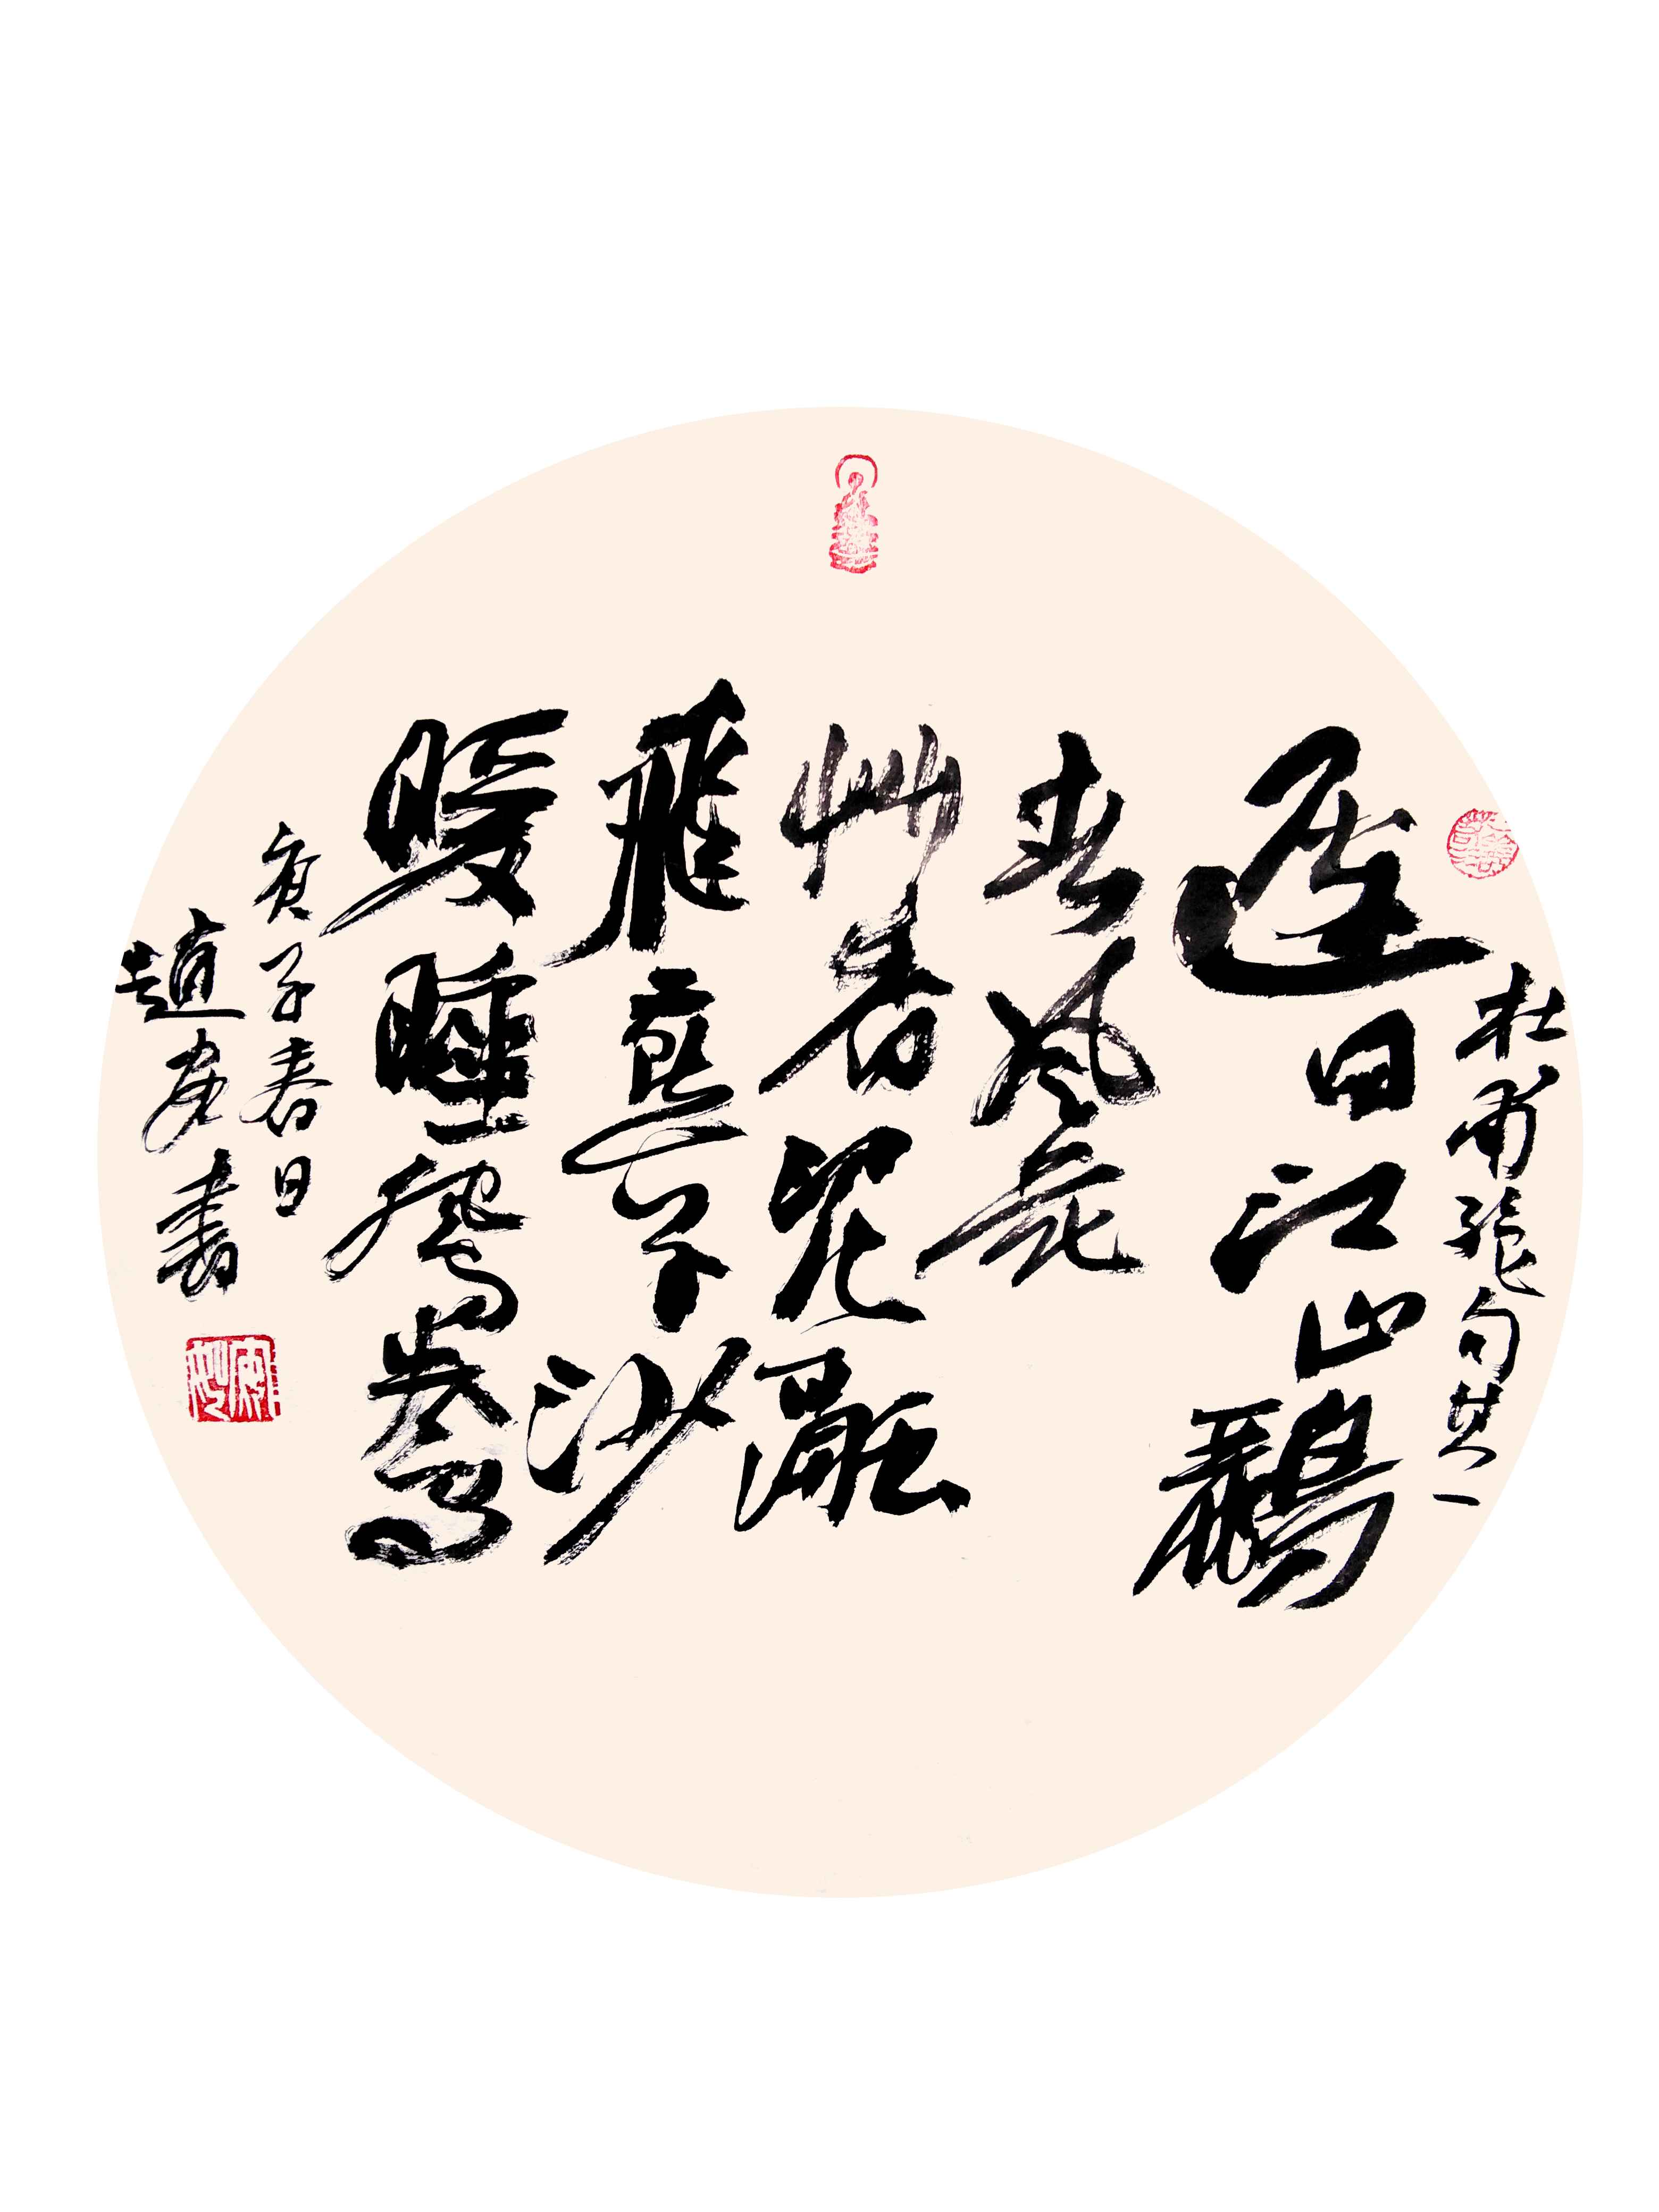 杜甫絶句其一
遲日江山鸝
春风花
艸香泥融
飛燕子沙
暖睡鴛鴦
庚子春日
趙書